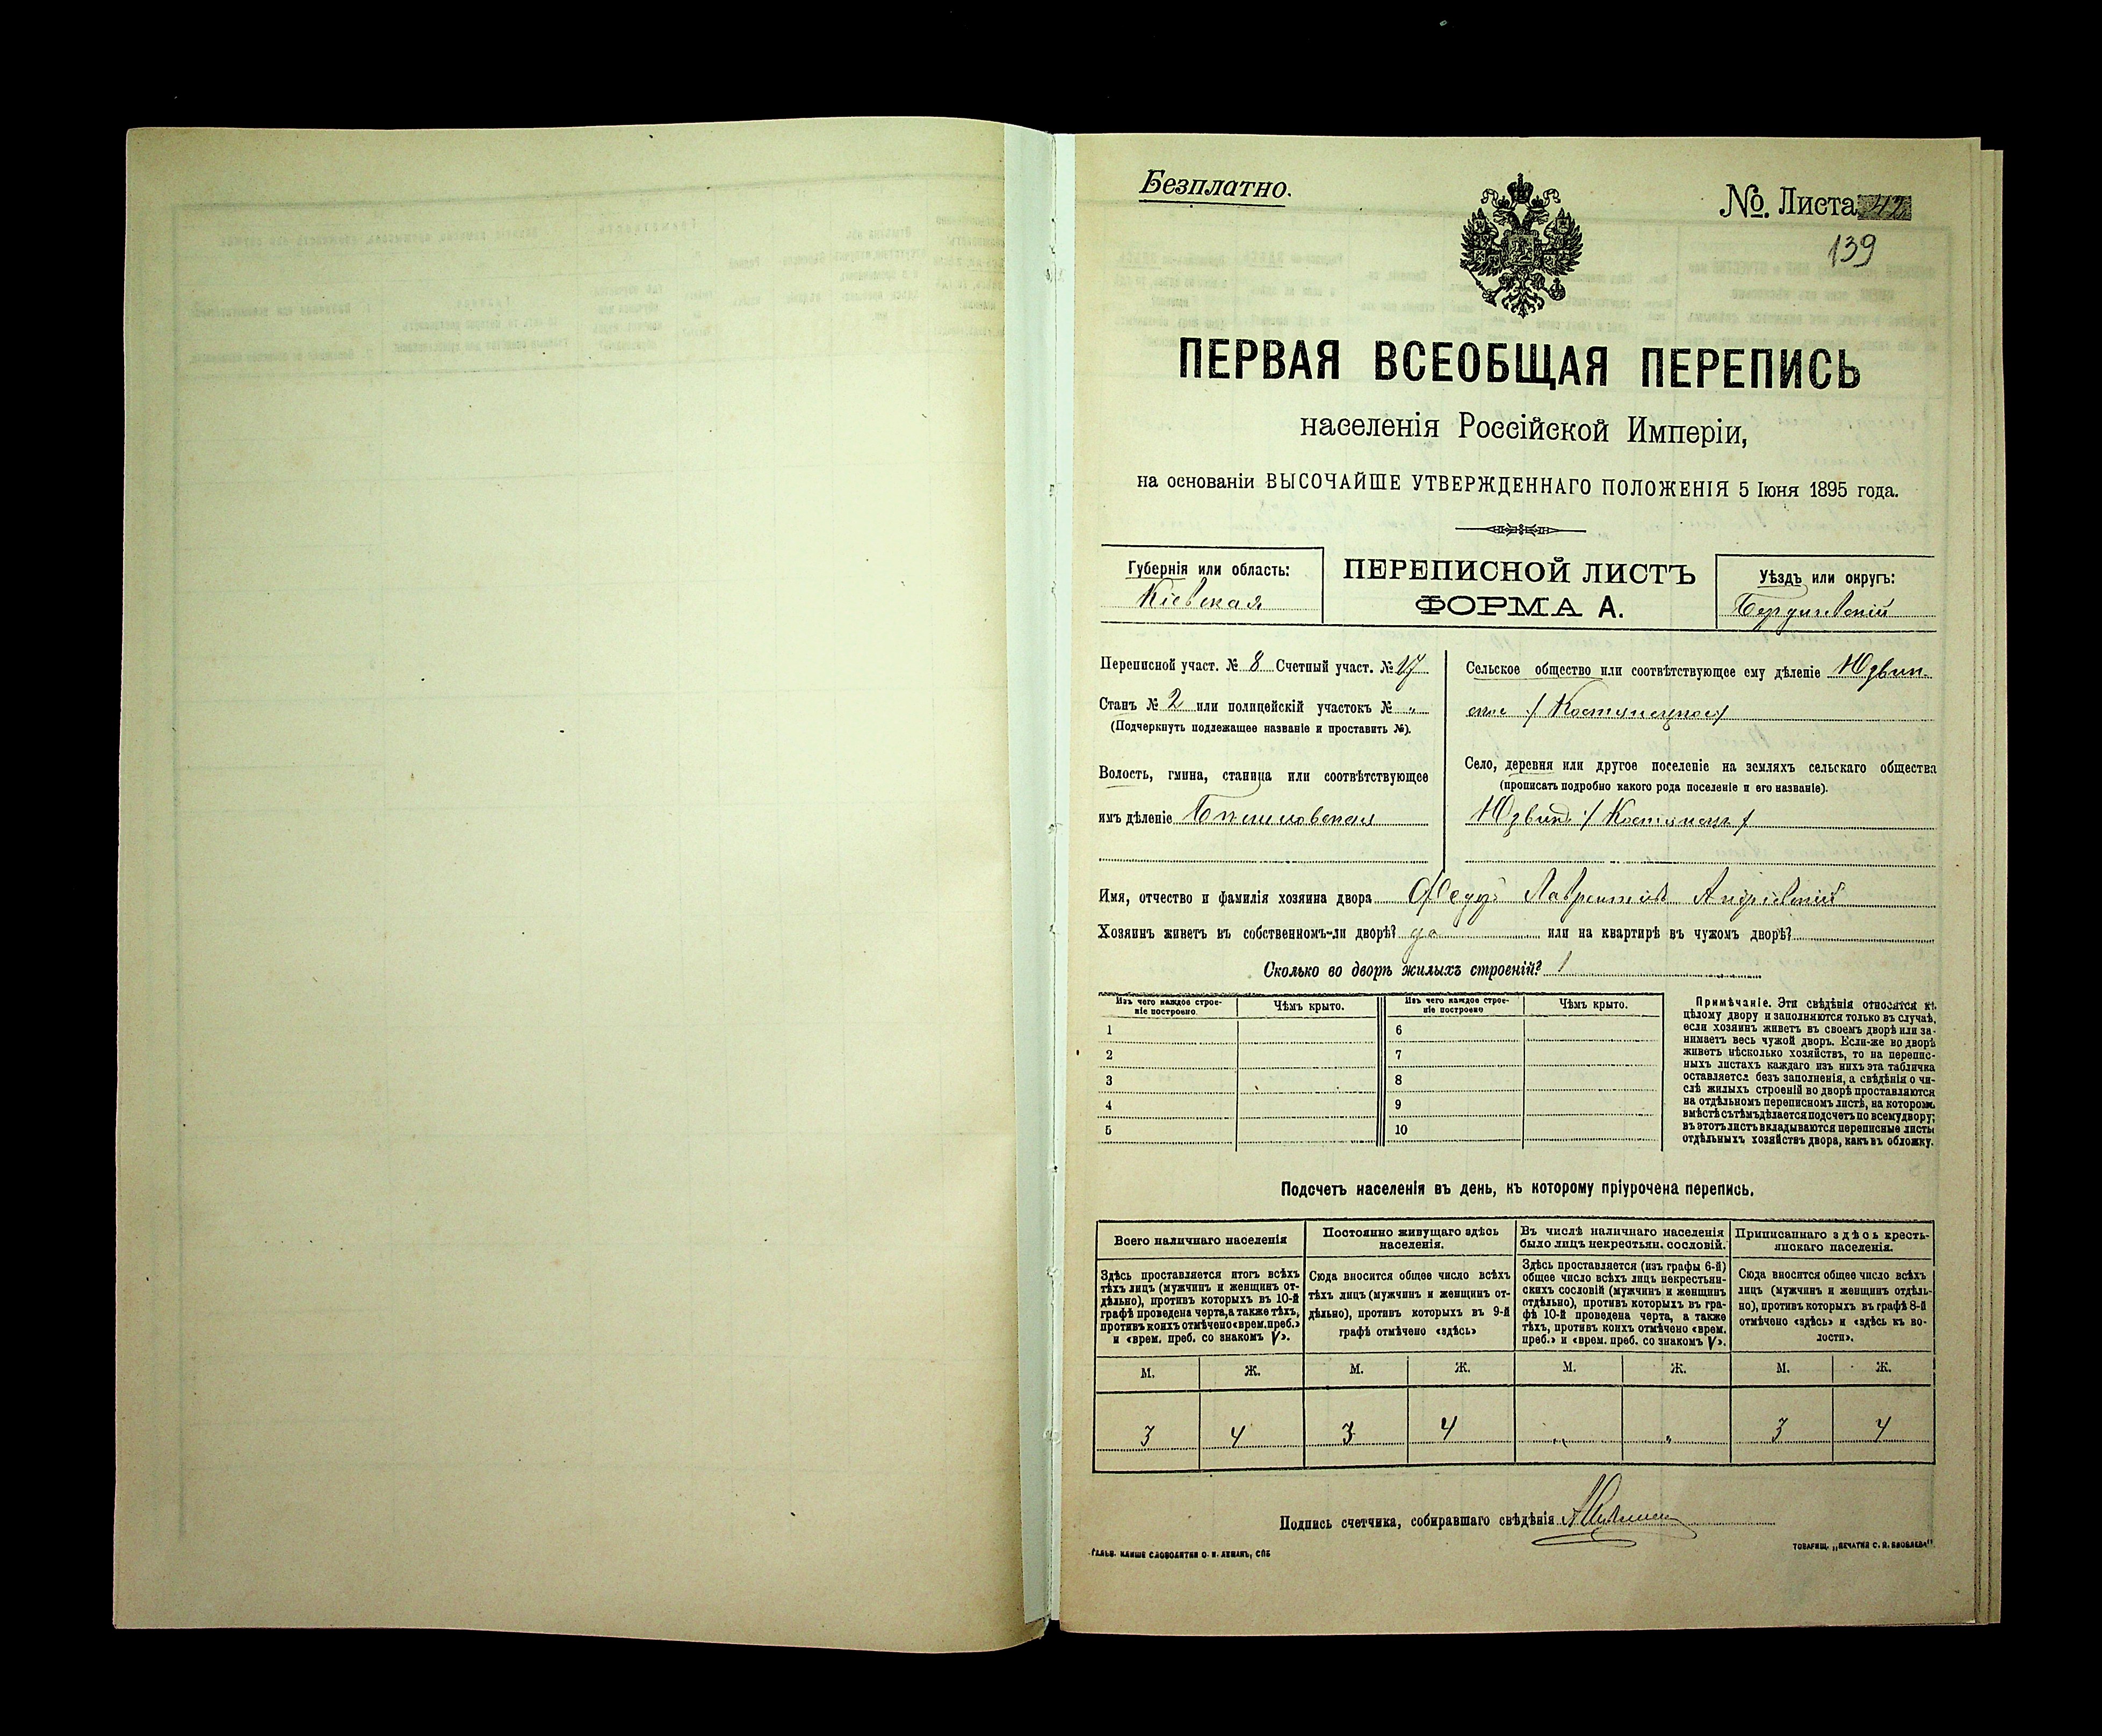 Безплатно.
№. Листа 42
139
ПЕРВАЯ ВСЕОБЩАЯ ПЕРЕПИСЬ
населенія Россійской Имперіи,
на основаніи ВЫСОЧАЙШЕ УТВЕРЖДЕННАГО ПОЛОЖЕНІЯ 5 Іюня 1895 года.
Губернія или область:
Кіевская
ПЕРЕПИСНОЙ ЛИСТЪ
ФОРМА А.
Уѣздъ или округъ:
Бердичевскій
Переписной участ. № 8 Счетный участ. № 17
Станъ № 2 или полицейскій участокъ № „
(Подчеркнуть подлежащее названіе и проставить №).
Волость, гмина, станица или соотвѣтствующее
имъ дѣленіе
Сельское общество или соотвѣтствующее ему дѣленіе Юдвин-
ское
Село, деревня или другое поселеніе на земляхъ сельскаго общества
(прописать подробно какого рода поселеніе и его названіе).
Имя, отчество и фамилія хозяина двора Лаврентіевъ Андріевскій
Хозяинъ живетъ въ собственномъ-ли дворѣ? да или на квартирѣ въ чужомъ дворѣ?
Сколько во дворѣ жилыхъ строеній? 1
Изъ чего каждое строе-
ніе построено.
Чѣмъ крыто.
Изъ чего каждое строе-
ніе построено
Чѣмъ крыто.
1 6
2 7
3 8
4 9
5 10
Примѣчаніе. Эти свѣдѣнія относятся къ
цѣлому двору и заполняются только въ случаѣ,
если хозяинъ живетъ въ своемъ дворѣ или за-
нимаетъ весь чужой дворъ. Если-же во дворѣ
живетъ нѣсколько хозяйствъ, то на перепис-
ныхъ листахъ каждаго изъ нихъ эта табличка
оставляется безъ заполненія, а свѣдѣнія о чи-
слѣ жилыхъ строеній во дворѣ проставляются
на отдѣльномъ переписномъ листѣ, на которомъ
вмѣстѣ съ тѣмъ дѣлается подсчетъ по всему двору;
въ этотъ листъ вкладываются переписные листы
отдѣльныхъ хозяйствъ двора, какъ въ обложку.
Подсчетъ населенія въ день, къ которому пріурочена перепись.
Всего наличнаго населенія
Здѣсь проставляется итогъ всѣхъ
тѣхъ лицъ (мужчинъ и женщинъ от-
дѣльно), противъ которыхъ въ 10-й
графѣ проведена черта, а также тѣхъ,
противъ коихъ отмѣчено «врем. преб.»
и «врем. преб. со знакомъ V».
Постоянно живущаго здѣсь
населенія.
Сюда вносится общее число всѣхъ
тѣхъ лицъ (мужчинъ и женщинъ от-
дѣльно), противъ которыхъ въ 9-й
графѣ отмѣчено «здѣсь»
Въ числѣ наличнаго населенія
было лицъ некрестьян. сословій.
Здѣсь проставляется (изъ графы 6-й)
общее число всѣхъ лицъ некрестьян-
скихъ сословій (мужчинъ и женщинъ
отдѣльно), противъ которыхъ въ гра-
фѣ 10-й проведена черта, а также
тѣхъ, противъ коихъ отмѣчено «врем.
преб.» и «врем. преб. со знакомъ V».
Приписаннаго здѣсь кресть-
янскаго населенія.
Сюда вносится общее число всѣхъ
лицъ (мужчинъ и женщинъ отдѣль-
но), противъ которыхъ въ графѣ 8-й
отмѣчено «здѣсь» и «здѣсь къ во-
лости».
М. Ж. М. Ж. М. Ж. М. Ж.
3 4 3 4 „ „ 3 4
Подпись счетчика, собиравшаго свѣдѣнія
ГАЛЬВ. КЛИШЕ СЛОВОЛИТНИ О. И. ЛЕМАНЪ, СПБ
ТОВАРИЩ. „ПЕЧАТНЯ С. П. ЯКОВЛЕВА"